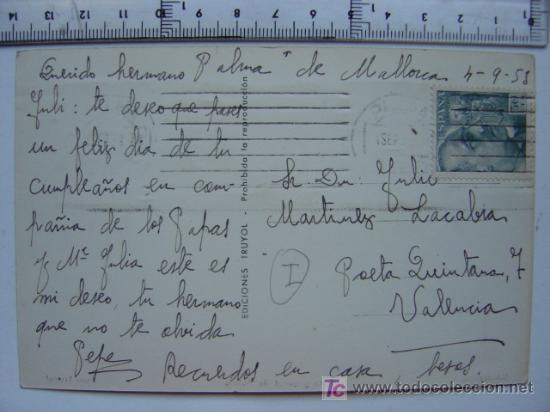 14 13 12 11 10 9 8 7 6 5 4 3 2 1 0
Querido hermano Palma de Mallorca 4-9-53
Juli: te deseo que pases
un feliz día de tu
cumpleaños en com-
pañia de los Papas
y Mª Julia este es
mi deseo, tu hermano
que no te olvida
Pepe
Recuerdos en casa, besos.
EDICIONES IRUYOL - Prohibida la reproducción
ESPAÑA
SEP
Sr. Dn. Julio
Martinez Lacabra
Poeta Quintana, 7
Valencia
I
todocoleccion
www.todocoleccion.net